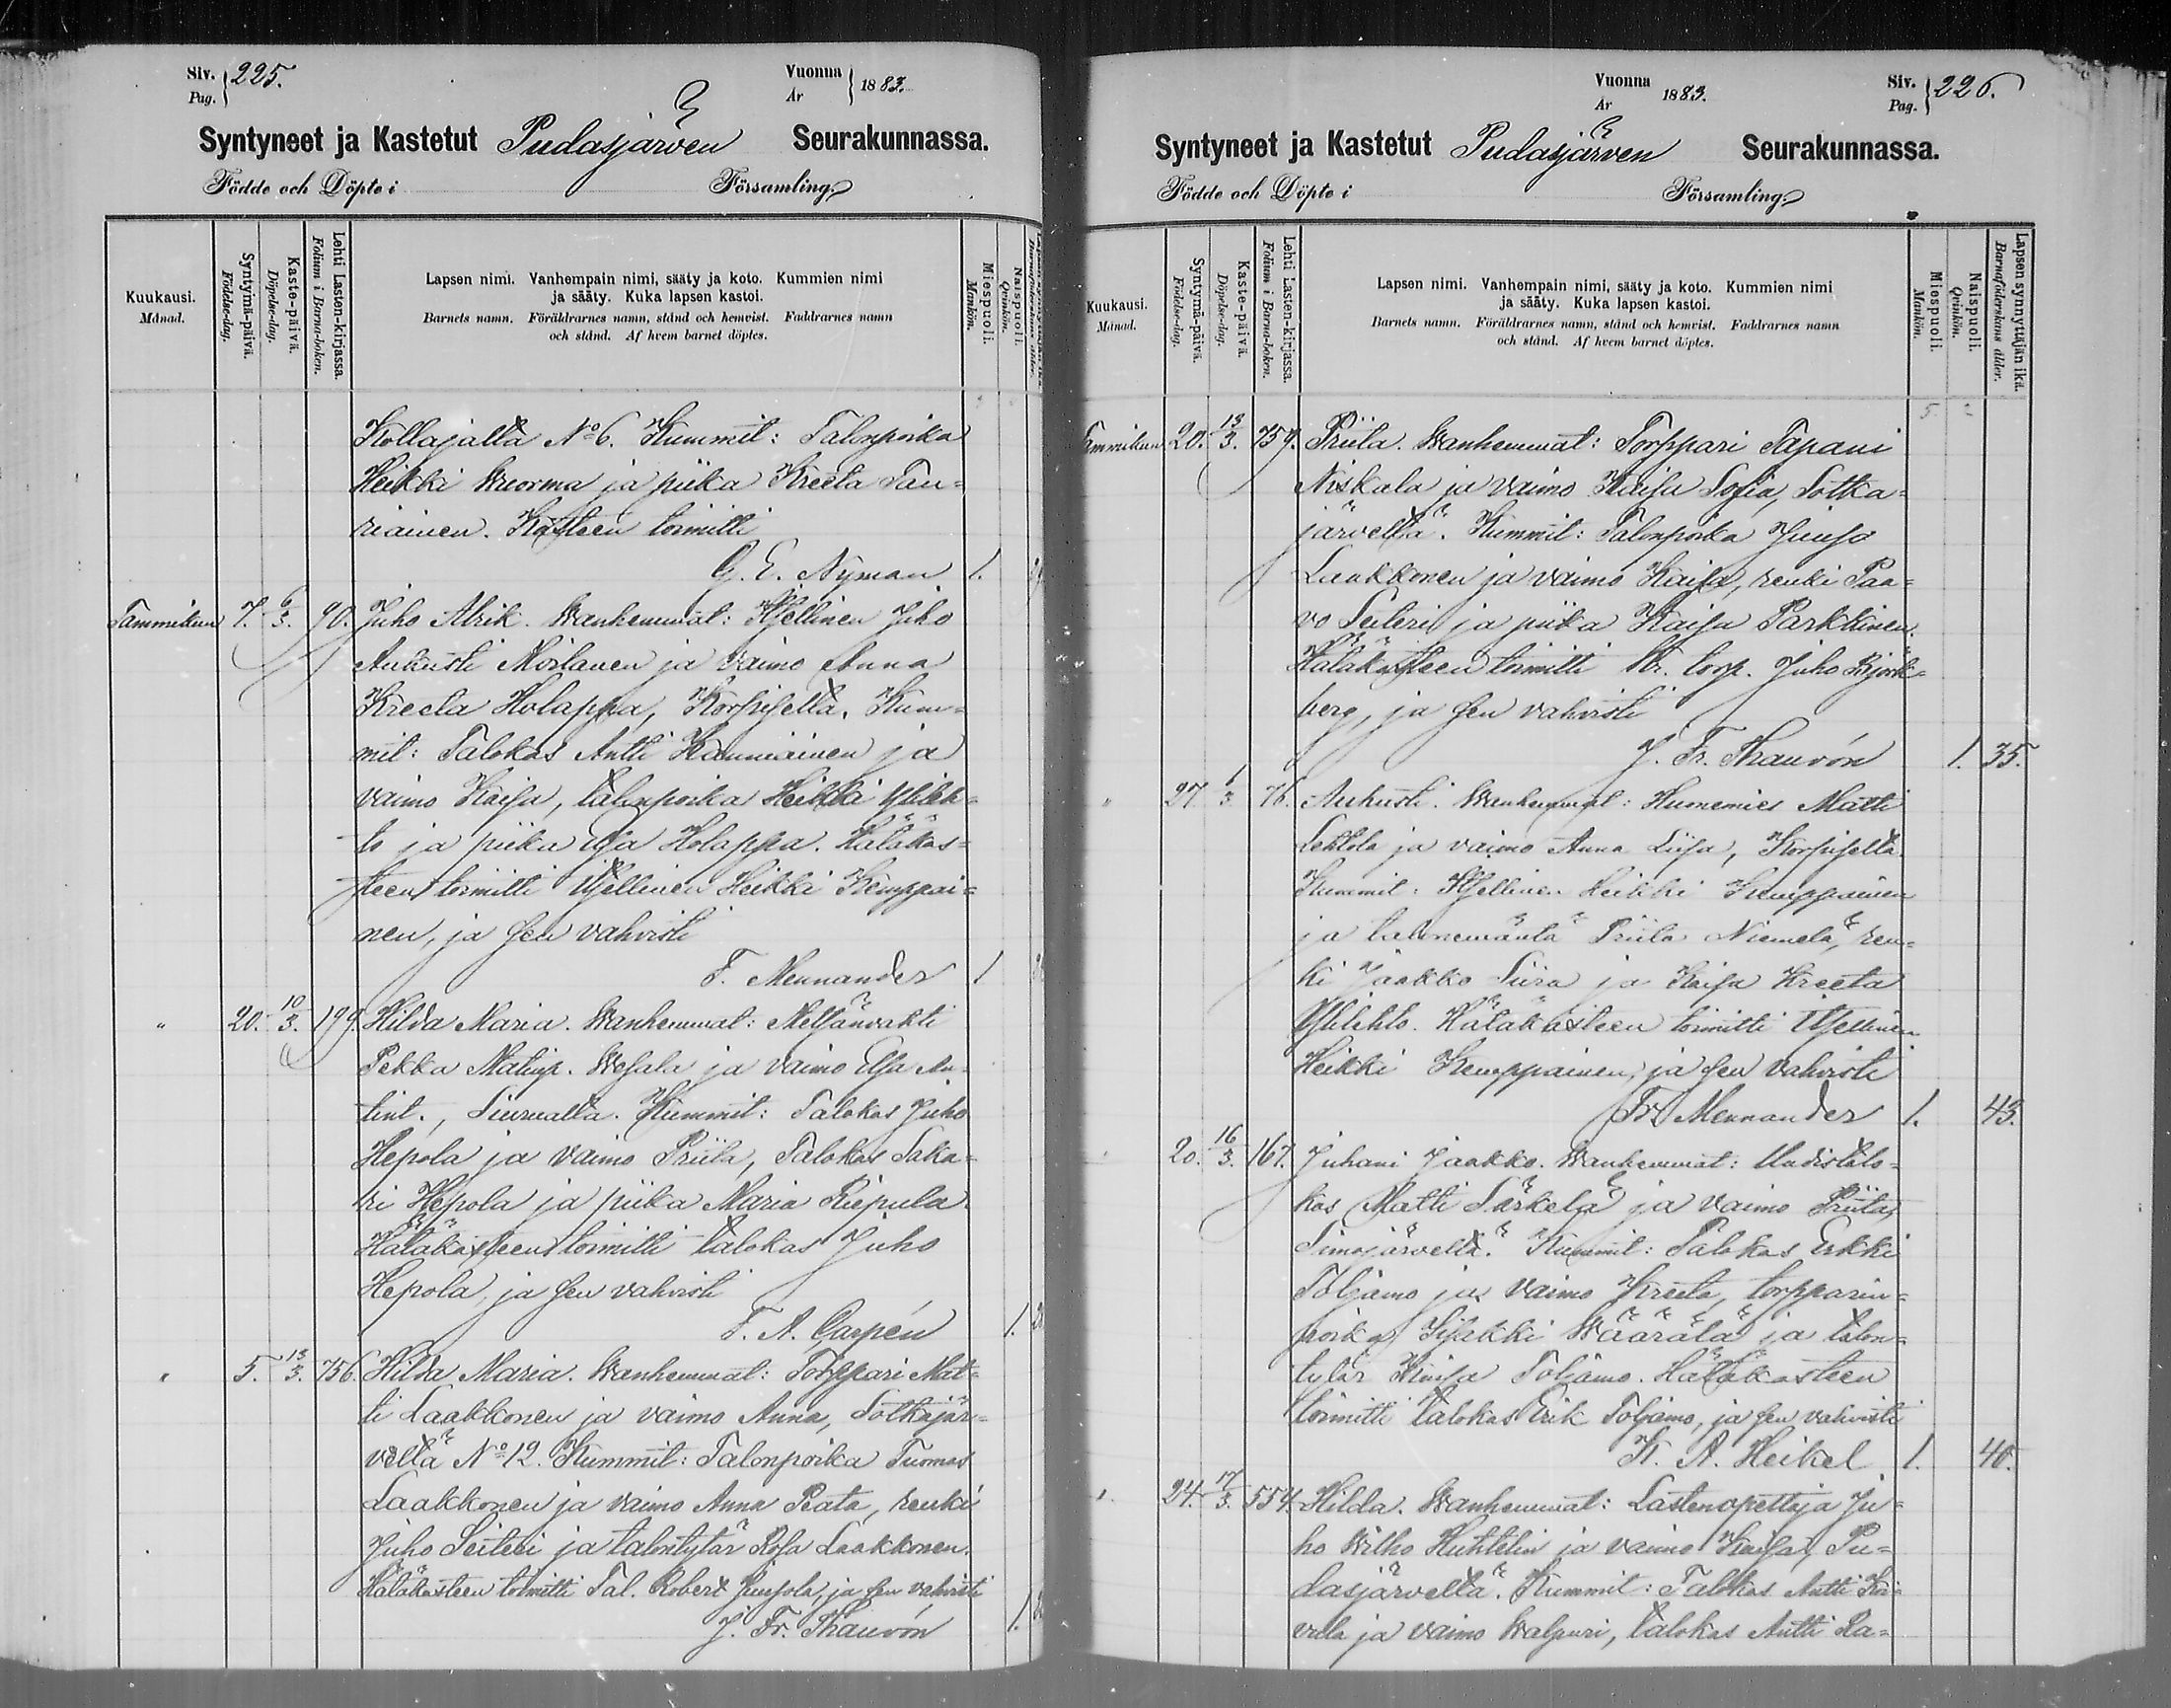 Siv. Pag. } 225.
Vuonna År } 1883.
Syntyneet ja Kastetut Pudasjärven Seurakunnassa.
Födde och Döpte i Församling.
Kuukausi. Månad.
Syntymä-päivä. Födelse-dag.
Kaste-päivä. Döpelse-dag.
Lehti Lasten-kirjassa. Folium i Barna-boken.
Lapsen nimi. Vanhempain nimi, sääty ja koto. Kummien nimi
ja sääty. Kuka lapsen kastoi.
Barnets namn. Föräldrarnes namn, stånd och hemvist. Faddrarnes namn
och stånd. Af hvem barnet döptes.
Miespuoli. Mankön.
Naispuoli. Qvinkön.
Kollajalta No 6. Kummit: Talonpoika
Heikki Wuorma ja piika Kreeta Tau-
riainen. Kasteen toimitti
G. E. Nyman 1.
Tammikuu 7. 6/3. 90. Juho Alrik. Wanhemmat: Itsellinen Juho
Aukusti Moilanen ja vaimo Anna
Kreeta Holappa, Korpisella. Kum-
mit: Talokas Antti Kanniainen ja
vaimo Kaisa, talonpoika Heikki Ylileh-
to ja piika Holappa. Hätäkas-
teen toimitti Itsellinen Heikki Kemppai-
nen, ja sen vahvisti
F. Mennander 1
" 20. 10/3. 199. Hilda Maria. Wanhemmat: Metsänvahti
Pekka Matinp. Wesala ja vaimo Elsa An-
tint., Siurualta. Kummit: Talokas Juho
Hepola ja vaimo Priita, Talokas Saka-
ri Hepola ja piika Maria Riepula.
Hätäkasteen toimitti talokas Juho
Hepola, ja sen vahvisti
F. A. Carpén 1.
" 5. 13/3. 756. Hilda Maria. Wanhemmat: Torppari Mat-
ti Laakkonen ja vaimo Anna, Sotkajär-
veltä No 12. Kummit: Talonpoika Tuomas
Laakkonen ja vaimo Anna Peata, renki
Juho Seiteri ja talontytär Rosa Laakkonen.
Hätäkasteen toimitti Tal. Robert Juusola, ja sen vahvisti
J. Fr. Thauvón 1.
Vuonna År 1883.
Siv. Pag. } 226.
Syntyneet ja Kastetut Pudasjärven Seurakunnassa.
Födde och Döpte i Församling.
Kuukausi. Månad.
Syntymä-päivä. Födelse-dag.
Kaste-päivä. Döpelse-dag.
Lehti Lasten-kirjassa. Folium i Barna-boken.
Lapsen nimi. Vanhempain nimi, sääty ja koto. Kummien nimi
ja sääty. Kuka lapsen kastoi.
Barnets namn. Föräldrarnes namn, stånd och hemvist. Faddrarnes namn
och stånd. Af hvem barnet döptes.
Miespuoli. Mankön.
Naispuoli. Qvinkön.
Lapsen synnyttäjän ikä. Barnaföderskans ålder.
Tammikuu 20. 13/3. 759. Priita. Wanhemmat: Torppari Tapani
Niskala ja vaimo Kaisa Sofia, Sotka-
järveltä. Kummit: Talonpoika Juuso
Laakkonen ja vaimo Kaisa, renki Paa-
vo Seiteri ja piika Kaisa Parkkinen.
Hätäkasteen toimitti torp. Juho Björk-
berg, ja sen vahvisti
J. Fr. Thauvón 1. 35.
" 27. 1/3. 76. Aukusti. Wanhemmat: Huonemies Matti
Lehtola ja vaimo Anna Liisa, Korpisella.
Kummit: Itsellinen Heikki Kemppainen
ja talonemäntä Priita Niemelä, ren-
ki Jaakko Siira ja Kaisa Kreeta
Ylilehto. Hätäkasteen toimitti Itsellinen
Heikki Kemppainen, ja sen vahvisti
Fr. Mennander 1. 43.
20. 16/3. 167. Juhani Jaakko. Wanhemmat: Uudistalo-
kas Matti Särkelä ja vaimo Priita,
Simojärveltä. Kummit: Talokas Erkki
Toljamo ja vaimo Kreeta, torpparin-
poika Iisakki Wäärälä ja talon-
tytär Kaisa Toljamo. Hätäkasteen
toimitti talokas Erik Toljamo, ja sen vahvisti
K. A. Heikel 1. 40.
" 24. 17/3. 554. Hilda. Wanhemmat: Lastenopettaja Ju-
ho Wilho Huhtelin ja vaimo Kaisa, Pu-
dasjärveltä. Kummit: Talokas Antti Koi-
vula ja vaimo Walpuri, talokas Antti Ra-